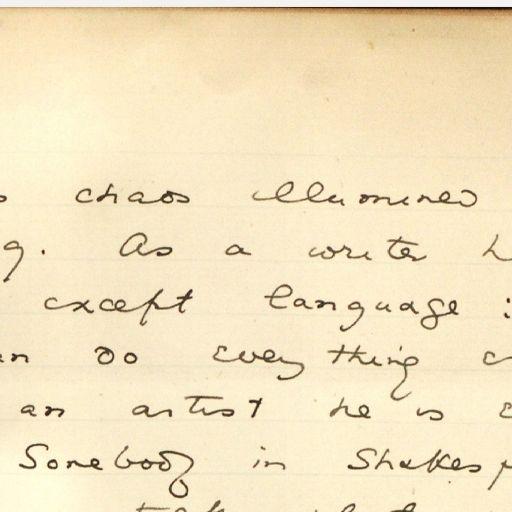 chaos illumined
As a writer
except language :
do everything
an artist he is
Somebody in Shakesp